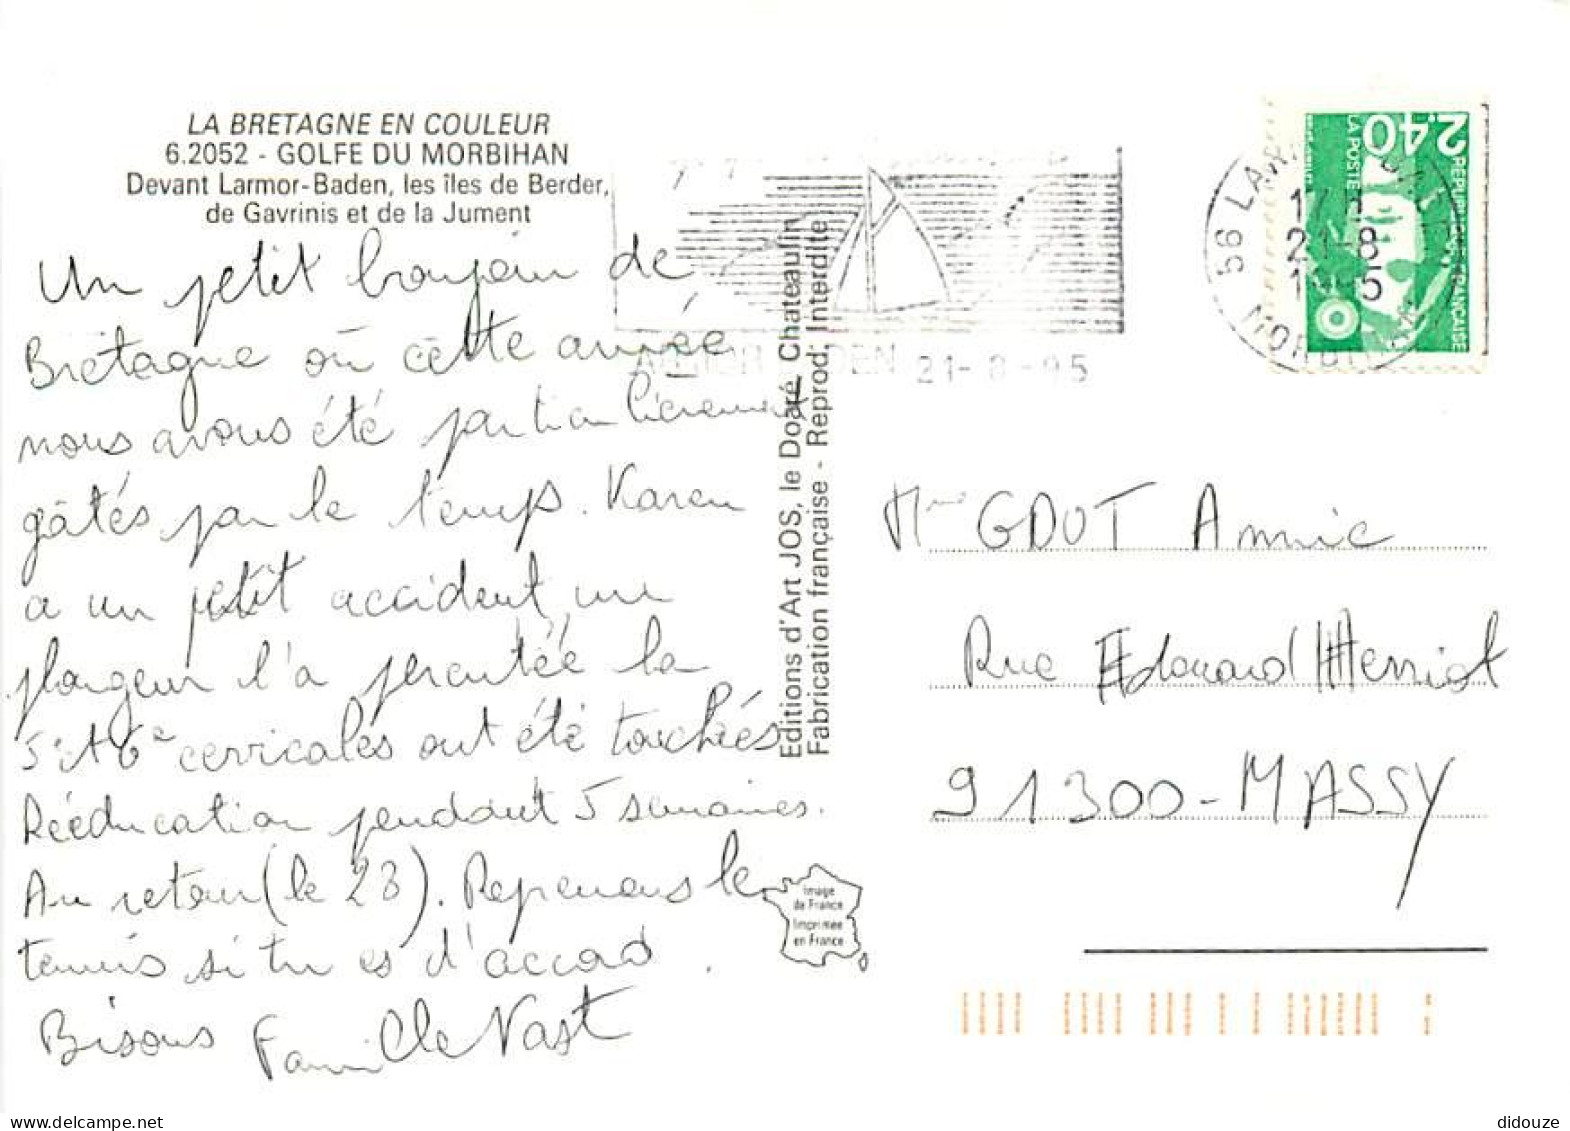 LA BRETAGNE EN COULEUR
6.2052 - GOLFE DU MORBIHAN
Devant Larmor-Baden, les îles de Berder,
de Gavrinis et de la Jument
Un petit bonjour de
Bretagne où cette année
nous avons été particulièrement
gâtés par le temps. Karen
a un petit accident, un
plongeur l'a percutée la
5e et 6e cervicales ont été touchées
Rééducation pendant 5 semaines.
Au retour (le 28). Reprenons le
tennis si tu es d'accord.
Bisous Famille Vast
Editions d'Art JOS, le Doaré, Chateaulin
Fabrication française - Reprod. Interdite
Image
de France
Imprimée
en France
21-8-95
2.40
LA POSTE
REPUBLIQUE FRANÇAISE
56
17H
21-8
MORBIHAN
Mme GDUT Annie
Rue Edouard Herriot
91300-MASSY
didouze